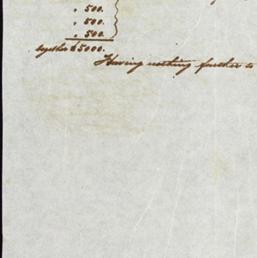 " 500.
" 500.
" 500.
together $5000.
Having nothing further to